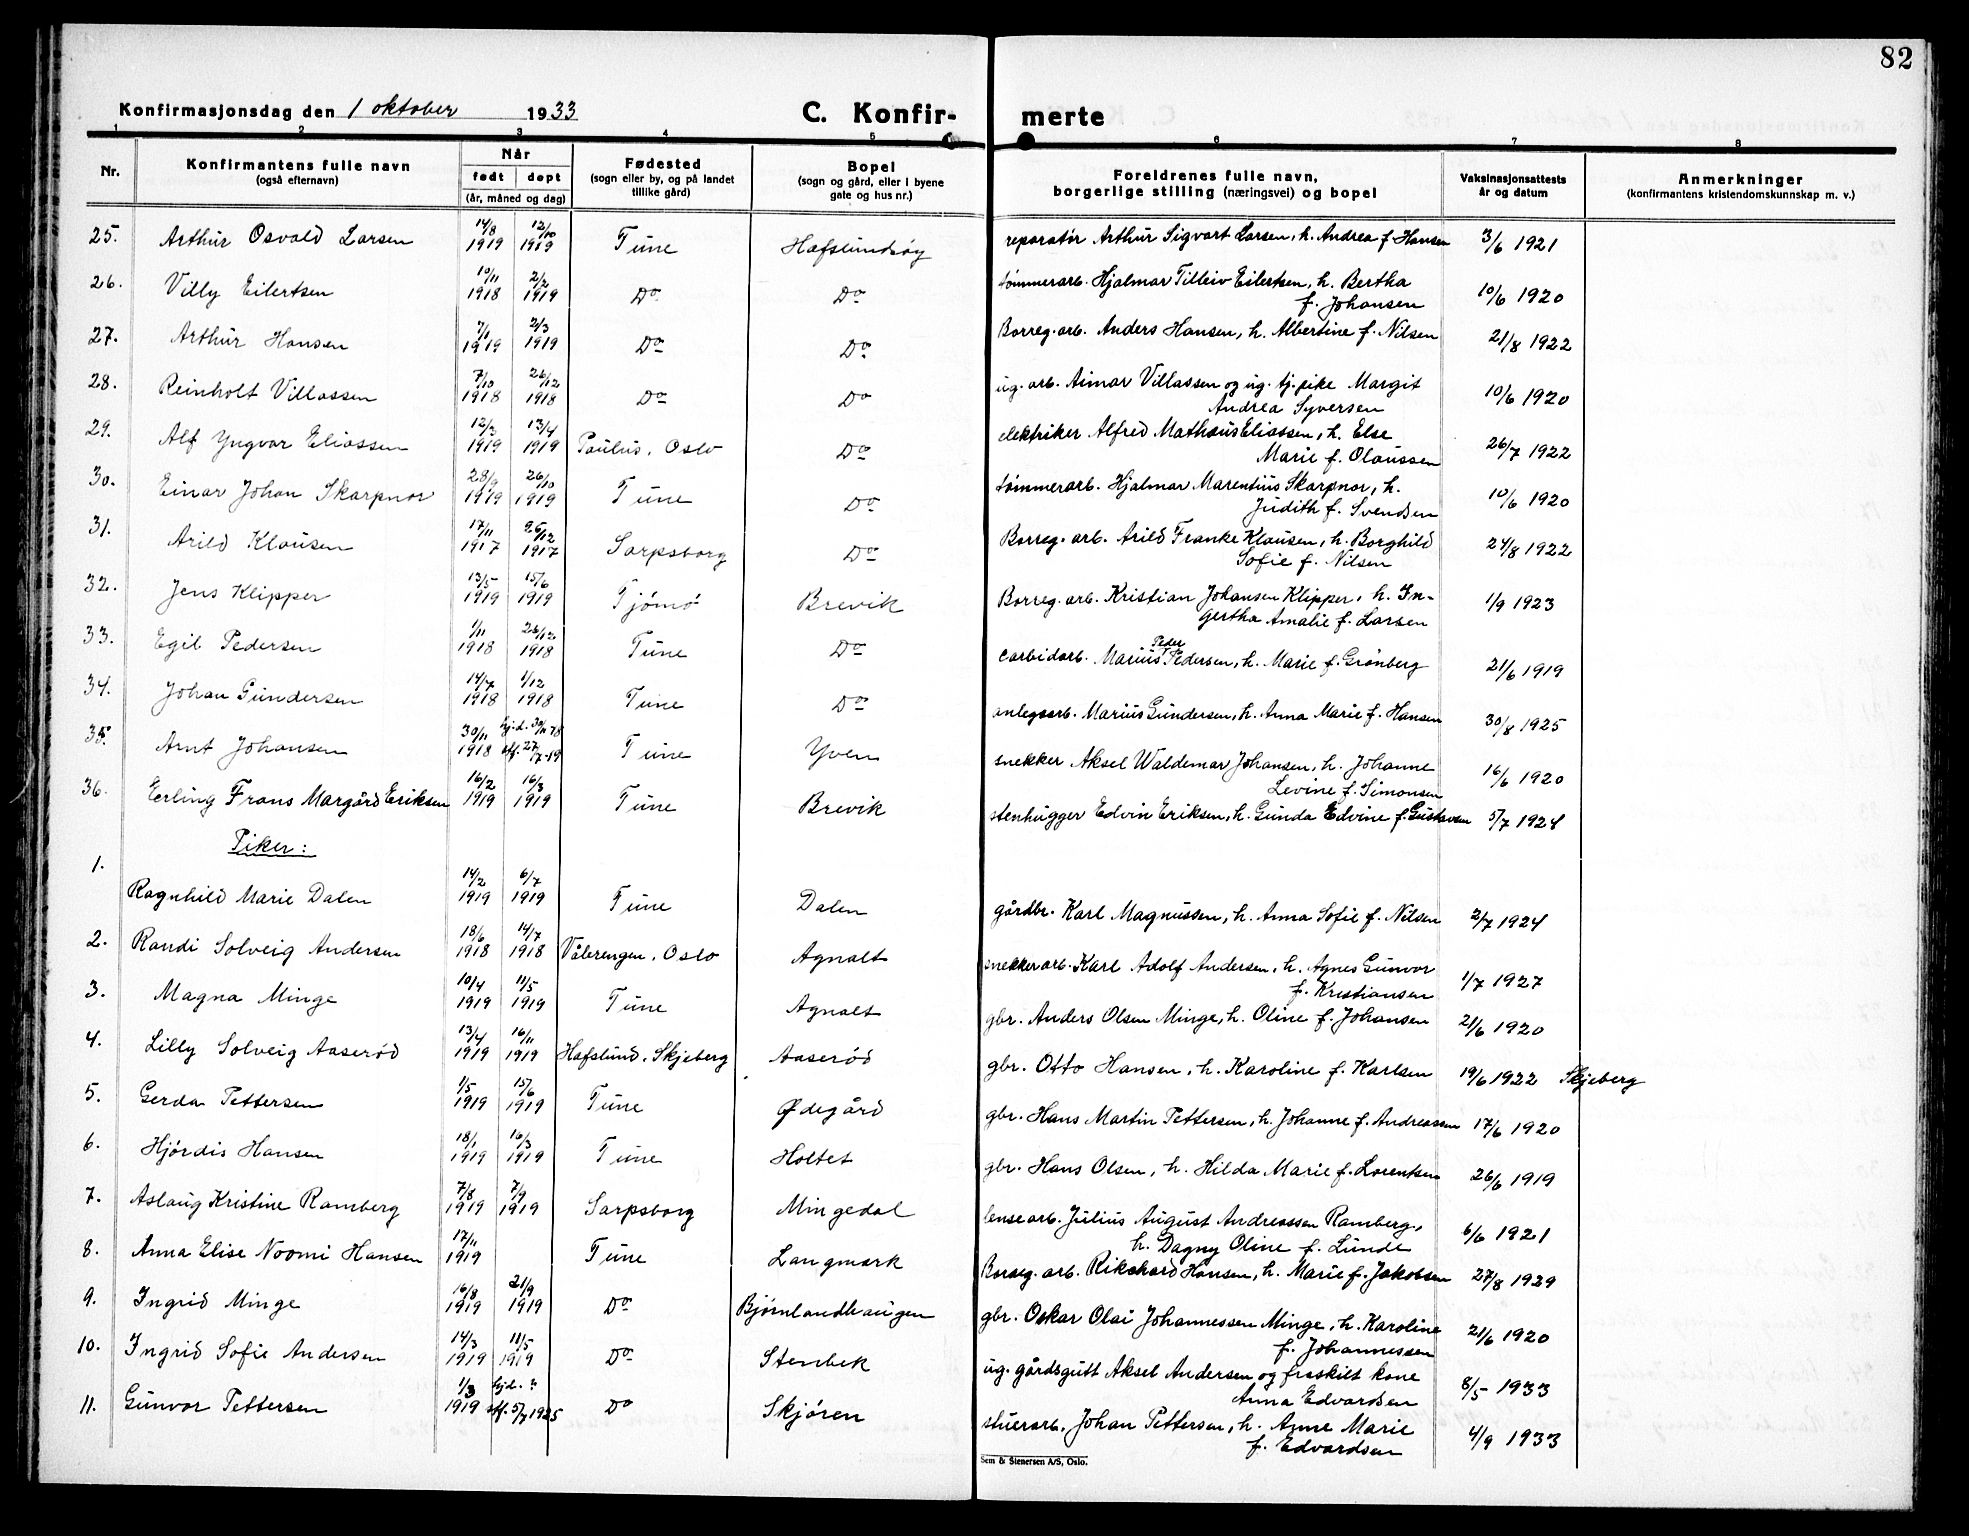 82
Konfirmasjonsdag den 1 oktober 1933 C. Konfir- merte
1 2 3 4 5 6 7 8
Nr. Konfirmantens fulle navn (også efternavn) Når født døpt (år, måned og dag) Fødested (sogn eller by, og på landet tillike gård) Bopel (sogn og gård, eller i byene gate og hus nr.) Foreldrenes fulle navn, borgerlige stilling (næringsvei) og bopel Vaksinasjonsattests år og datum Anmerkninger (konfirmantens kristendomskunnskap m. v.)
25. Arthur Osvald Larsen 14/8 1919 12/10 1919 Tune Hafslundsøy reparatör Arthur Sigvart Larsen, h. Andrea f. Hansen 3/6 1921
26. Villy Eilertsen 10/11 1918 2/2 1919 Do Do tømmerarb. Hjalmar Tilleiv Eilertsen, h. Bertha
f. Johansen 10/6 1920
27. Arthur Hansen 7/1 1919 2/3 1919 Do Do Borreg. arb. Anders Hansen, h. Albertine f. Nilsen 21/8 1922
28. Reinholt Villassen 7/10 1918 26/12 1918 Do Do ug. arb. Aimar Villassen og ug. tj. pike Margit
Andrea Syversen 10/6 1920
29. Alf Yngvar Eliassen 12/3 1919 13/4 1919 Paulus, Oslo Do elektriker Alfred Mathæus Eliassen, h. Else
Marie f. Olaussen 26/7 1922
30. Einar Johan Skarpnor 28/9 1919 26/10 1919 Tune Do tømmerarb. Hjalmar Marentius Skarpnor, h.
Judith f. Svendsen 10/6 1920
31. Arild Klausen 17/11 1917 26/12 1917 Sarpsborg Do Borreg. arb. Arild Franke Klausen, h. Borghild
Sofie f. Nilsen 24/8 1922
32. Jens Klipper 13/5 1919 15/6 1919 Tjømø Brevik Borreg. arb. Kristian Johansen Klipper, h. In-
gertha Amalie f. Larsen 1/9 1923
33. Egil Pedersen 1/11 1918 26/12 1918 Tune Do carbidarb. Marius Peder Pedersen, h. Marie f. Grønberg 21/6 1919
34. Johan Gundersen 14/7 1918 1/12 1918 Tune Do anlegsarb. Marius Gundersen, h. Anna Marie f. Hansen 30/8 1925
35. Arnt Johansen 30/11 1918 hj.d. 30/11-18 stf. 27/7-19 Tune Yven snekker Aksel Waldemar Johansen, h. Johanne
Levine f. Simonsen 16/6 1920
36. Erling Frans Margård Eriksen 16/2 1919 16/3 1919 Tune Brevik stenhugger Edvin Eriksen, h. Gunda Edvine f. Gustavsen 5/7 1924
Piker:
1. Ragnhild Marie Dalen 14/2 1919 6/7 1919 Tune Dalen gårdbr. Karl Magnussen, h. Anna Sofie f. Nilsen 2/7 1924
2. Randi Solveig Andersen 18/6 1918 14/7 1918 Vålerengen, Oslo Agnalt snekkerarb. Karl Adolf Andersen, h. Agnes Gunvor
f. Kristiansen 1/7 1927
3. Magna Minge 10/4 1919 11/5 1919 Tune Agnalt gbr. Anders Olsen Minge, h. Oline f. Johansen 21/6 1920
4. Lilly Solveig Aaserød 13/4 1919 16/11 1919 Hafslund, Skjeberg Aaserød gbr. Otto Hansen, h. Karoline f. Karlsen 19/6 1922 Skjeberg
5. Gerda Pettersen 1/5 1919 15/6 1919 Tune Ødegård gbr. Hans Martin Pettersen, h. Johanne f. Andreassen 17/6 1920
6. Hjördis Hansen 18/1 1919 16/3 1919 Tune Holtet gbr. Hans Olsen, h. Hilda Marie f. Lorentsen 26/6 1919
7. Aslaug Kristine Ramberg 7/8 1919 7/9 1919 Sarpsborg Mingedal lensearb. Julius August Andreassen Ramberg,
h. Dagny Oline f. Lunde 6/6 1921
8. Anna Elise Noomi Hansen 17/11 1919 Tune Langmark Borreg. arb. Rikehard Hansen, h. Marie f. Jakobsen 27/8 1929
9. Ingrid Minge 16/8 1919 21/9 1919 Do Bjørnlandhaugen gbr. Oskar Olai Johannessen Minge, h. Karoline
f. Johannessen 21/6 1920
10. Ingrid Sofie Andersen 14/3 1919 11/5 1919 Do Stenbek ug. gårdsgutt Aksel Andersen og fraskilt kone
Anna Edvardsen 8/5 1933
11. Gunvor Pettersen 1/3 1919 hjd. ? stf. 5/7 1925 Do Skjøren stuerarb. Johan Pettersen, h. Anne Marie
f. Edvardsen 4/9 1933
Sem & Stenersen A/S, Oslo.